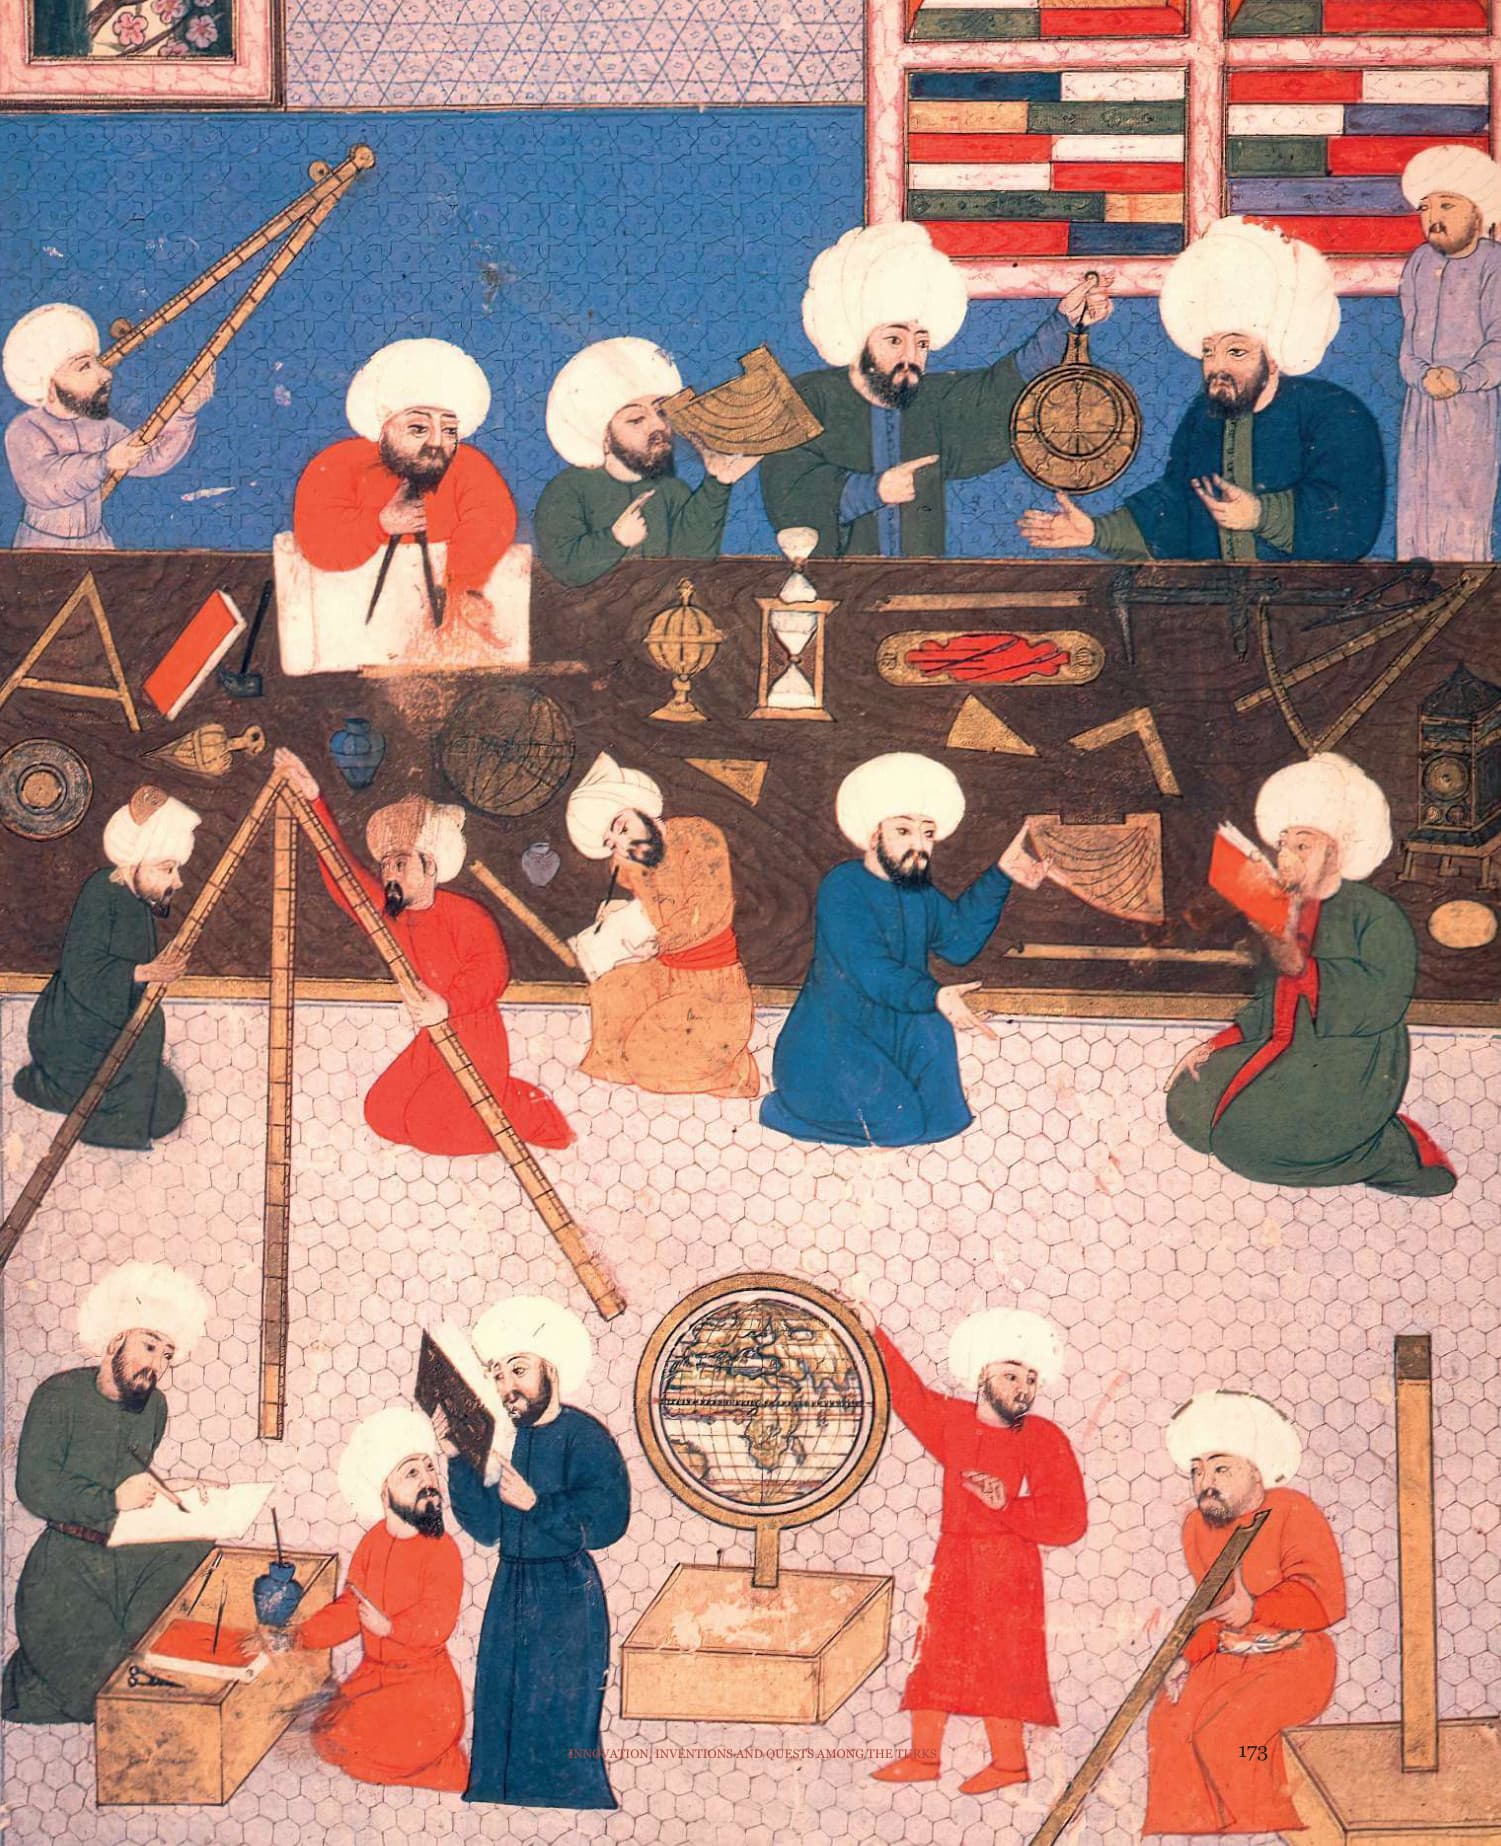 INNOVATION, INVENTIONS AND QUESTS AMONG THE TURKS
173